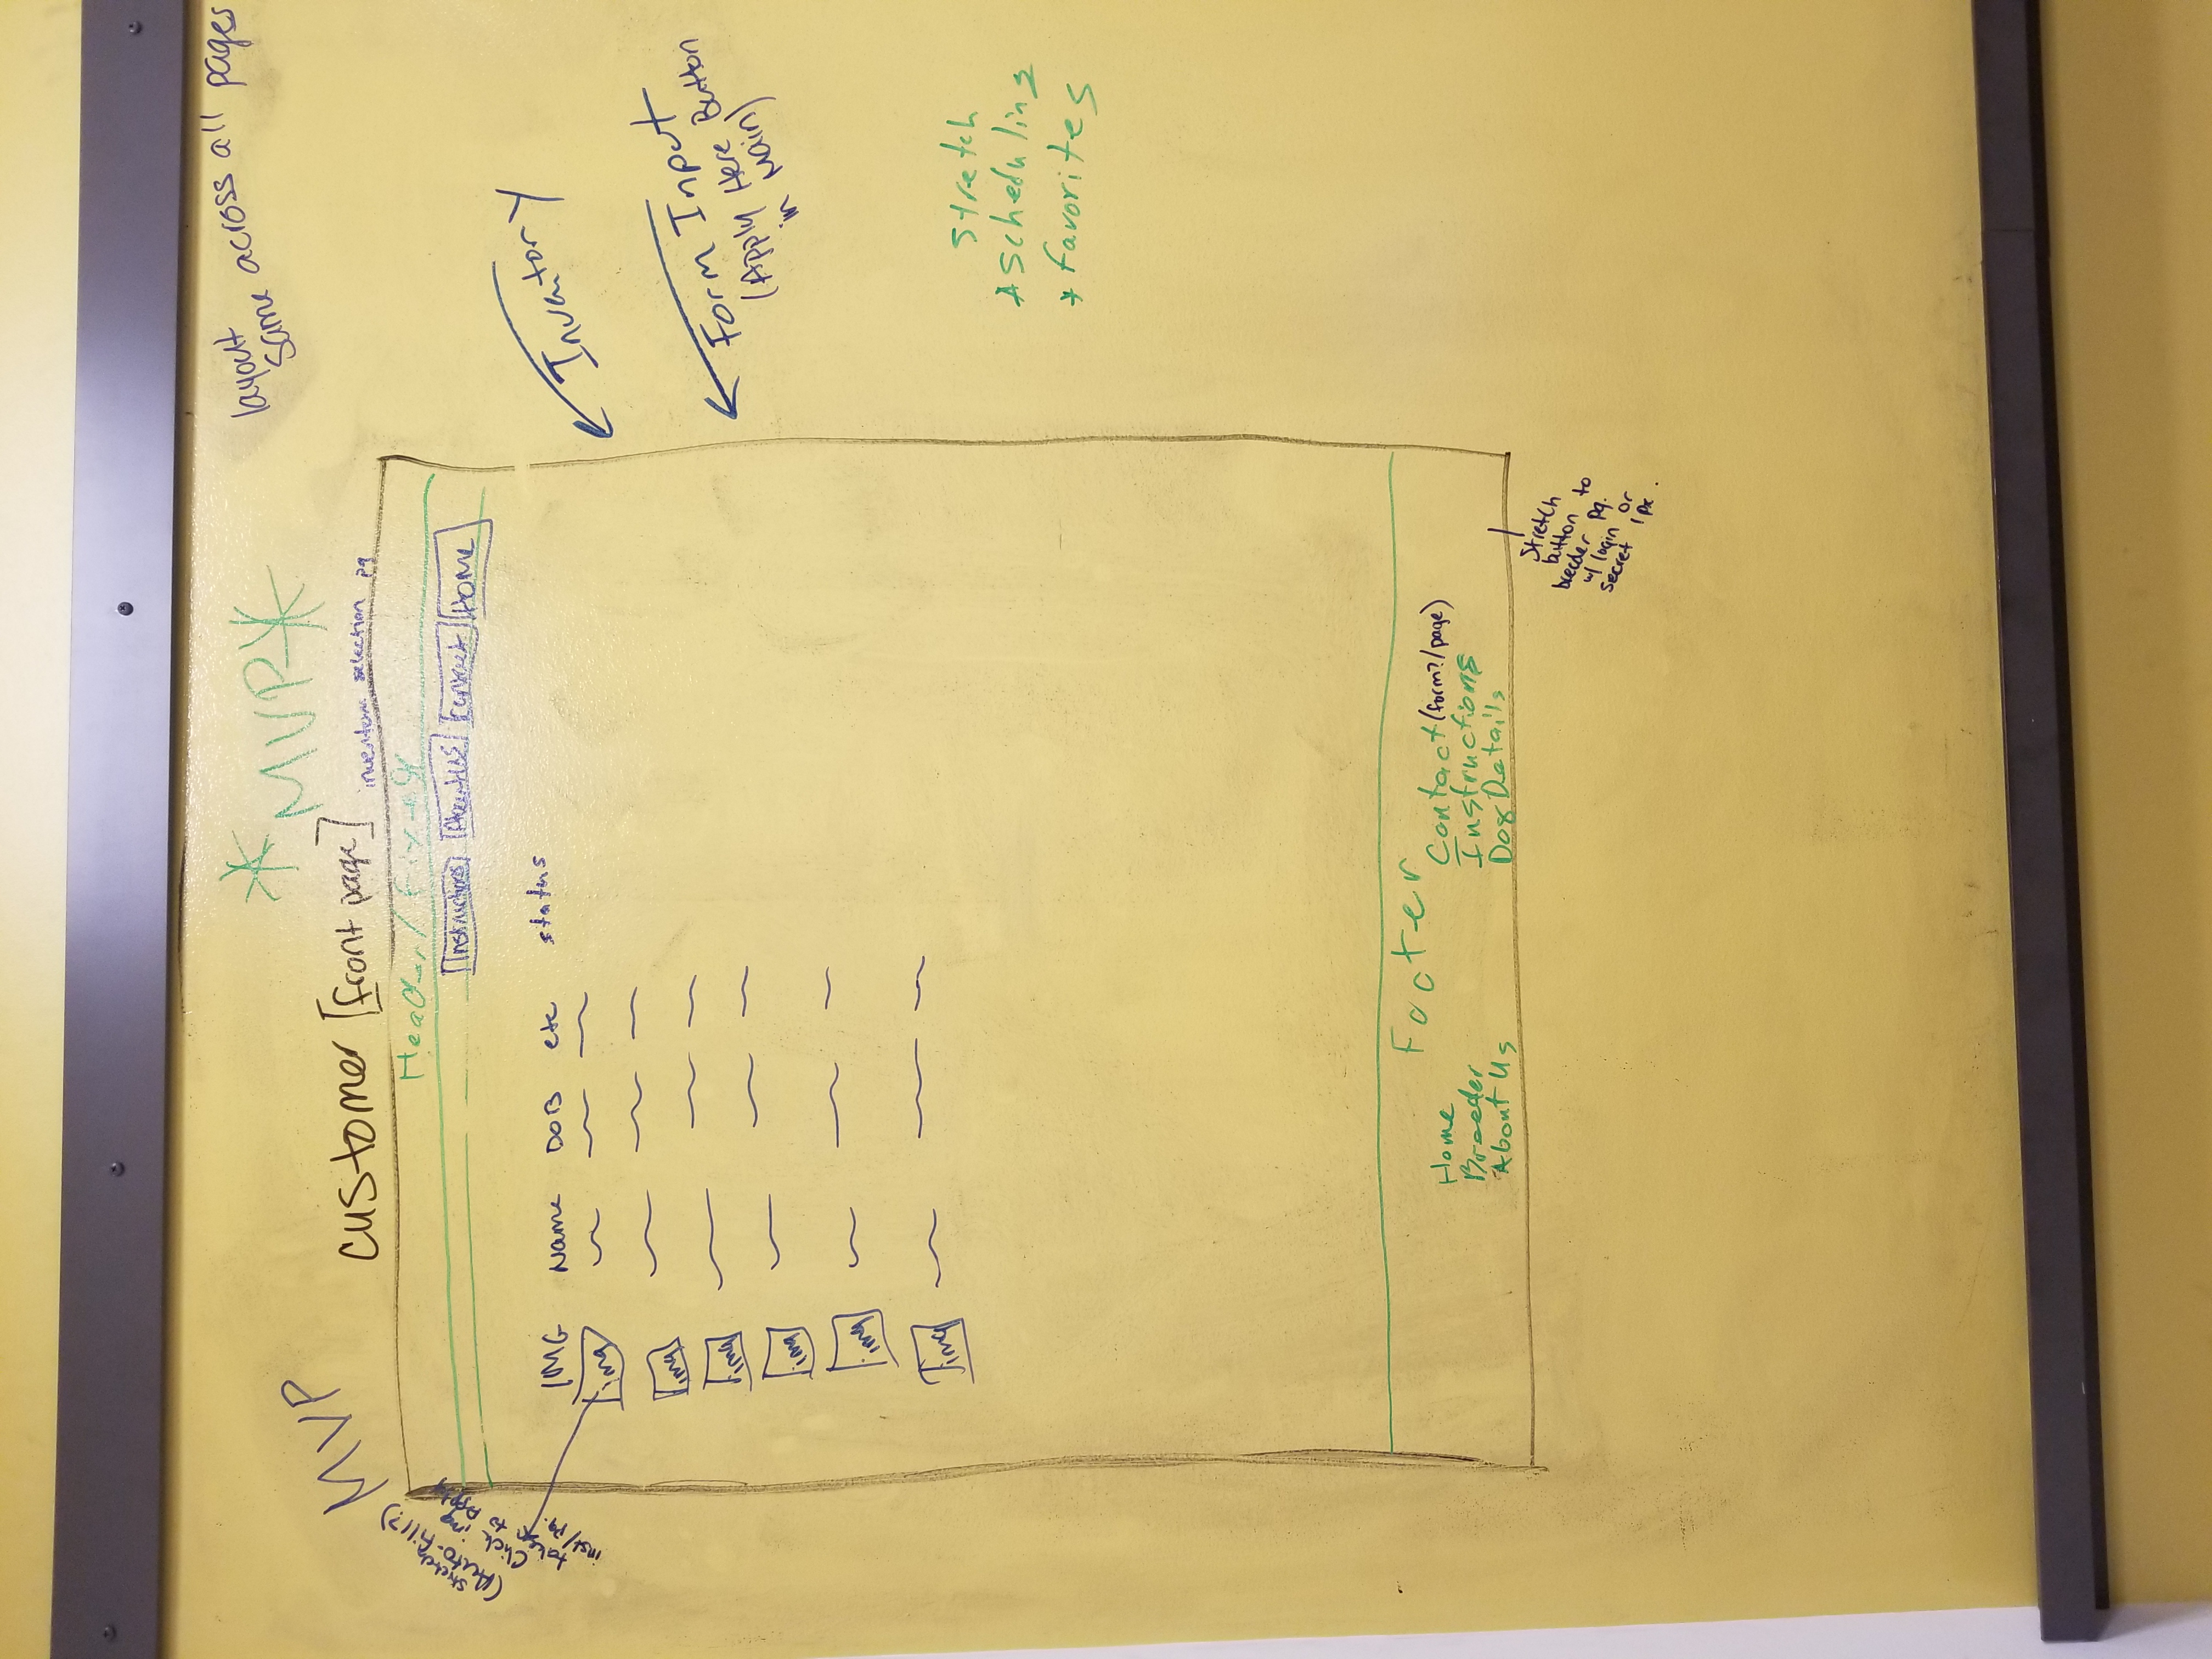 layout
same across all pages
*MVP*
MVP
customer [front page]
inventory selection pg
Header/Fixed
Instructions About US Contact Home
(stretch
(Auto-fill?)
Click img
take to App
inst/pg.
IMG Name DOB etc status
img
img
img
img
img
img
Inventory
Form Input
(Apply Here Button
in Main)
Stretch
*Scheduling
*favorites
Footer
Home
Breeder
About Us
Contact (form?/page)
Instructions
Dog Details
Stretch
button to
breeder pg.
w/ login or
secret 1px.